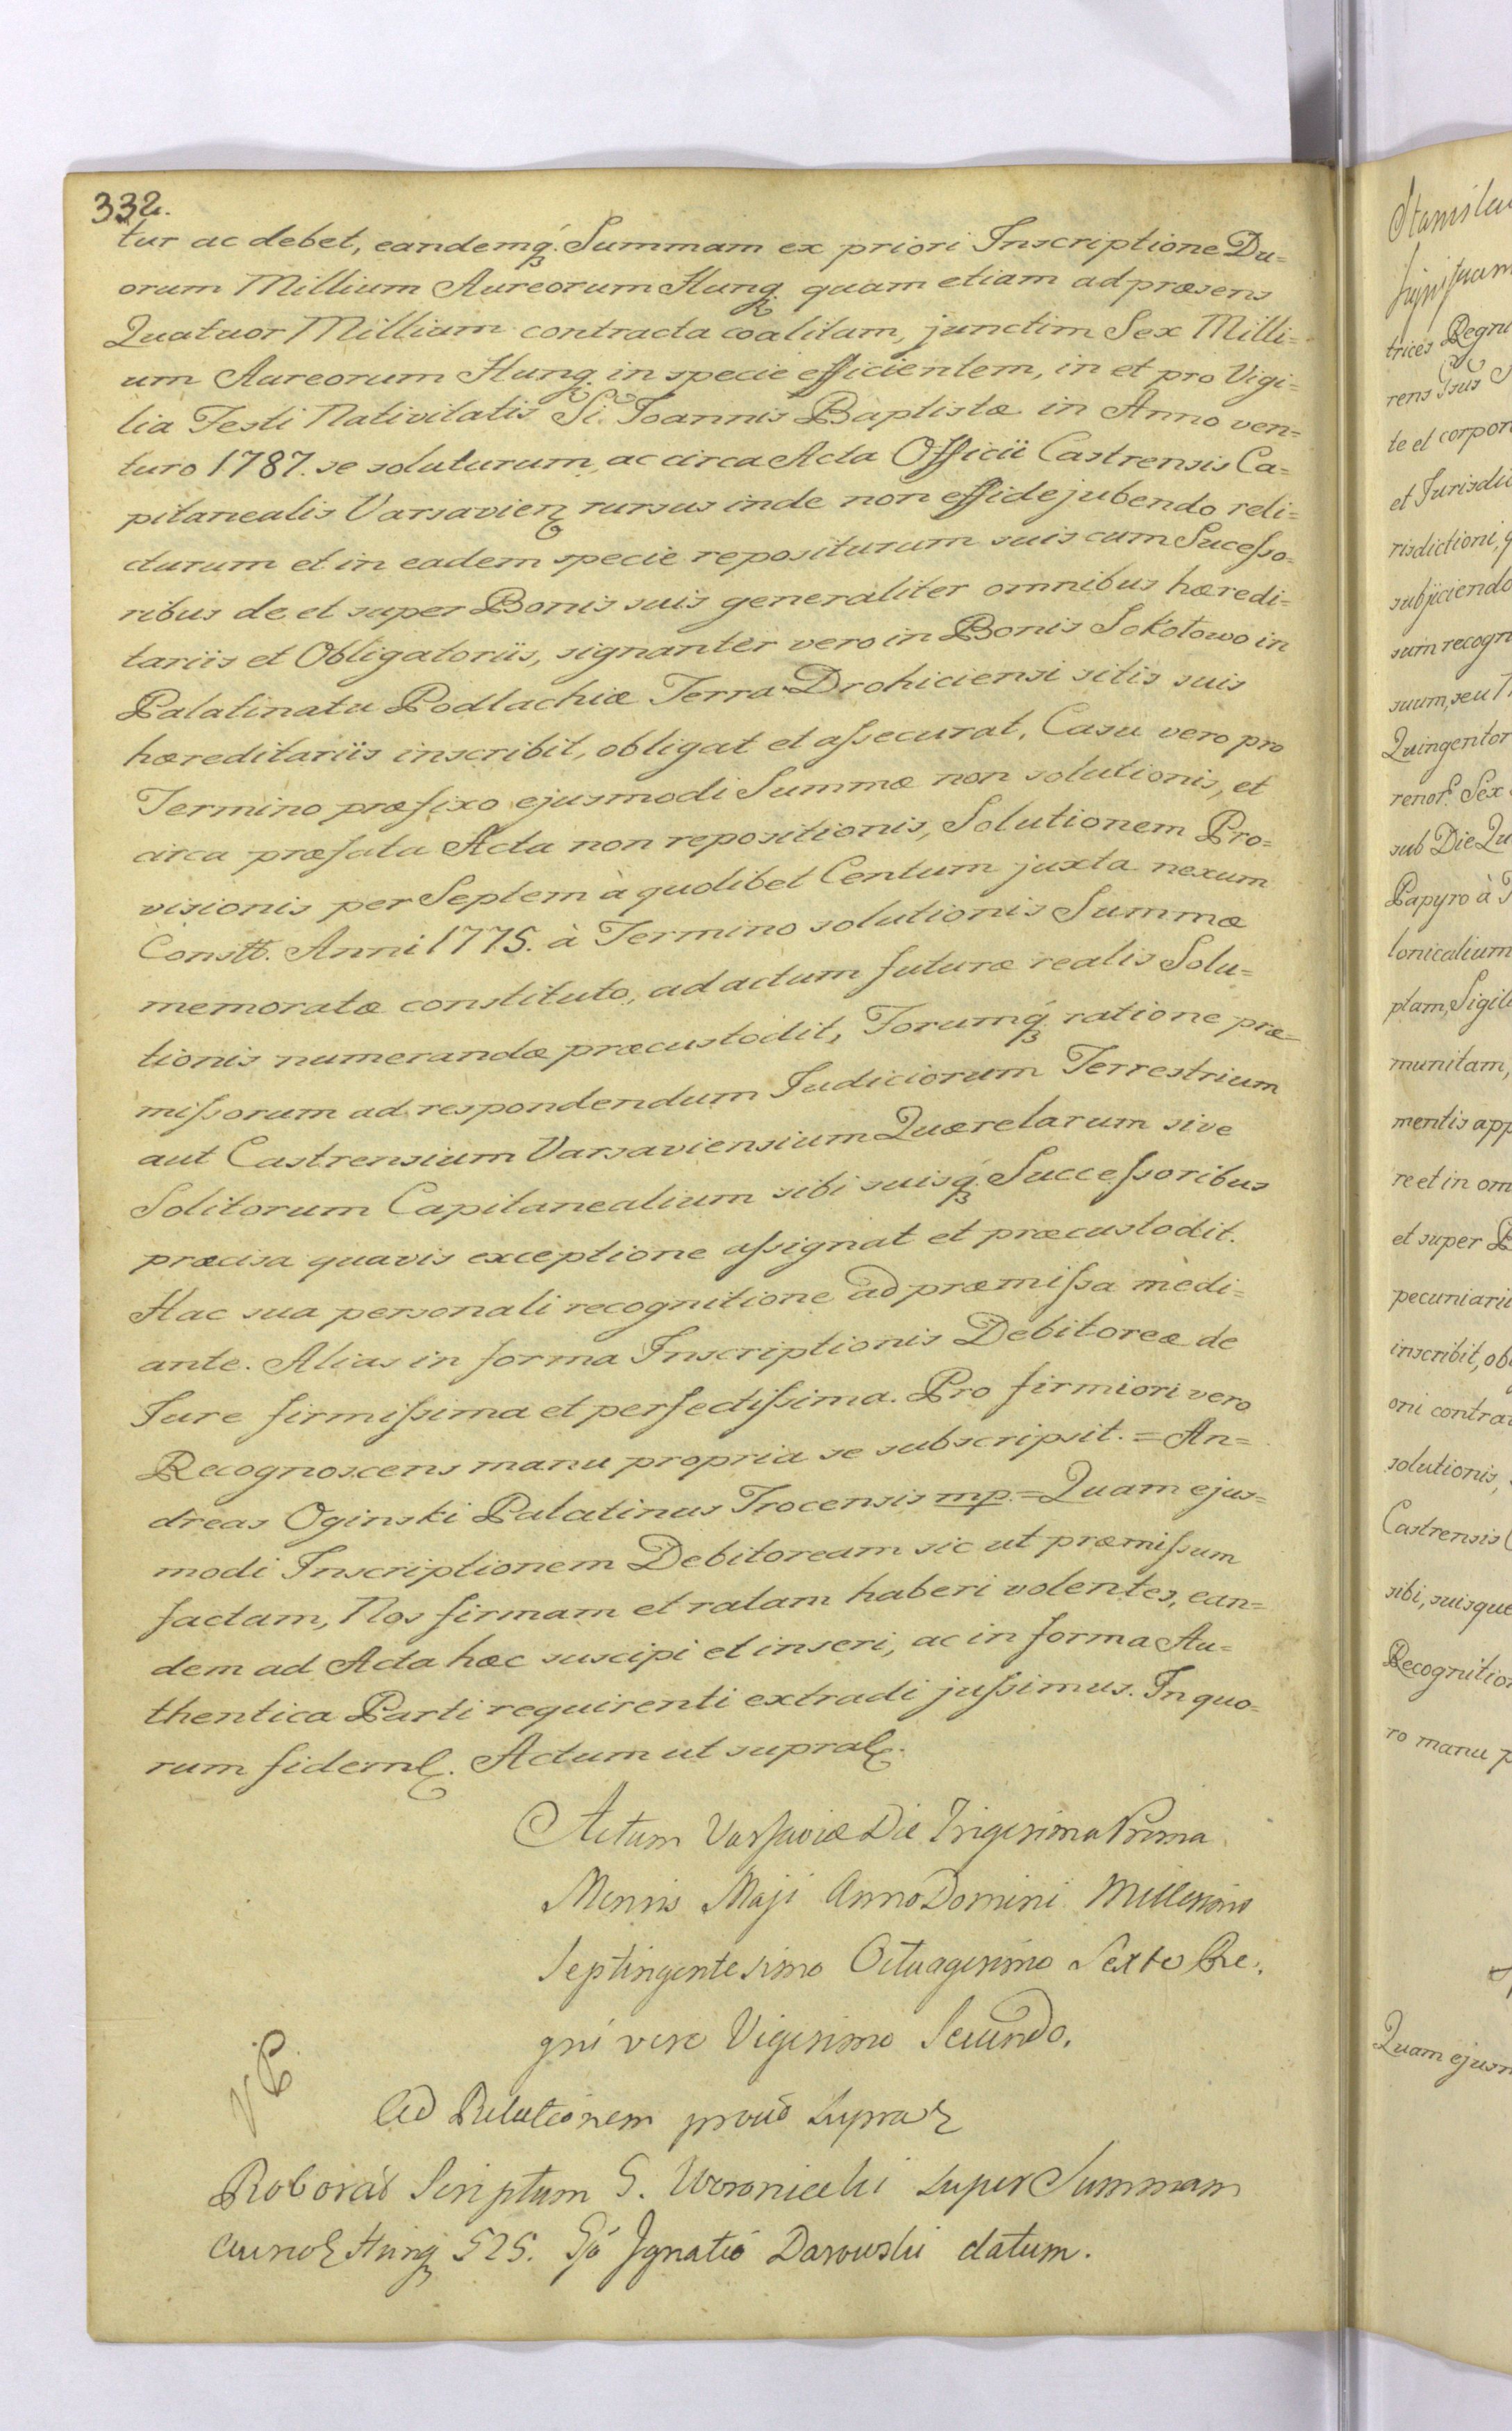 332.
tur ac debet, eandemq́. Summam ex priori Inscriptione Du=
orum Millium Aureorum Hung. quam etiam ad præsens
Quatuor Millium contracta coalitam, junctim Sex Milli=
um Aureorum Hung. in specie efficientem, in et pro Vigi=
lia Festi Nativitatis Si. Joannis Baptistæ in Anno ven=
turo 1787. se soluturum, ac circa Acta Officii Castrensis Ca=
pitanealis Varsavien rursus inde non effidejubendo reli=
cturum et in eadem specie repositurum suis cum Sucesso=
ribus de et super Bonis suis generaliter omnibus hæredi=
tariis et Obligatoriis, signanter vero in Bonis Sokołowo in
Palatinatu Podlachiæ Terra Drohiciensi sitis suis
hæreditariis inscribit, obligat et assecurat. Casu vero pro
Termino præfixo ejusmodi Summæ non solutionis, et
circa præfata Acta non repositionis, Solutionem Pro=
visionis per Septem à quolibet Centum juxta nexum
Constt. Anni 1775. à Termino solutionis Summæ
memoratæ constituto, ad actum futuræ realis Solu=
tionis numerandæ præcustodit, Forumq́ ratione præ=
missorum ad respondendum Judiciorum Terrestrium
aut Castrensium Varsaviensium Quærelarum sive
Solitorum Capitanealium sibi suisq́ Successoribus
præcisa quavis exceptione assignat et præcustodit.
Hac sua personali recognitione ad præmissa medi=
ante. Alias in forma Inscriptionis Debitoreæ de
Jure firmissima et perfectissima. Pro firmiori vero
Recognoscens manu propria se subscripsit. = An=
dreas Oginski Palatinus Trocensis mp. = Quam ejus=
modi Inscriptionem Debitoream sic ut præmissum
factam, Nos firmam et ratam haberi volentes, ean=
dem ad Acta hæc suscipi et inseri, ac in forma Au=
thentica Parti requirenti extradi jussimus. In quo=
rum fidem. Actum ut supra.
Actum Varsaviæ Die Trigesima Prima
Mensis Maji Anno Domini Millesimo
Septingentesimo Octuagesimo Sexto Re=
gni vero Vigesimo Secundo.
Ad Relationem prout supra
Roborat Scriptum G. Woroniecki super Summam
Hung 525. Gō Ignatio Darowski datum.
Stanislau
trices Regni
rens
te et corpor
et Jurisdic
risdictioni, q
subjiciendo
sum recogn
suum, seu
Quingentor
renor. Sex
sub Die Qu
Papyro à T
lonicalium
ptam, Sigil
munitam,
mentis app
re et in om
et super B
pecuniarii
inscribit, ob
oni contra
solutionis,
Castrensis C
sibi, suisque
Recognition
ro manu p
Quam ejusm